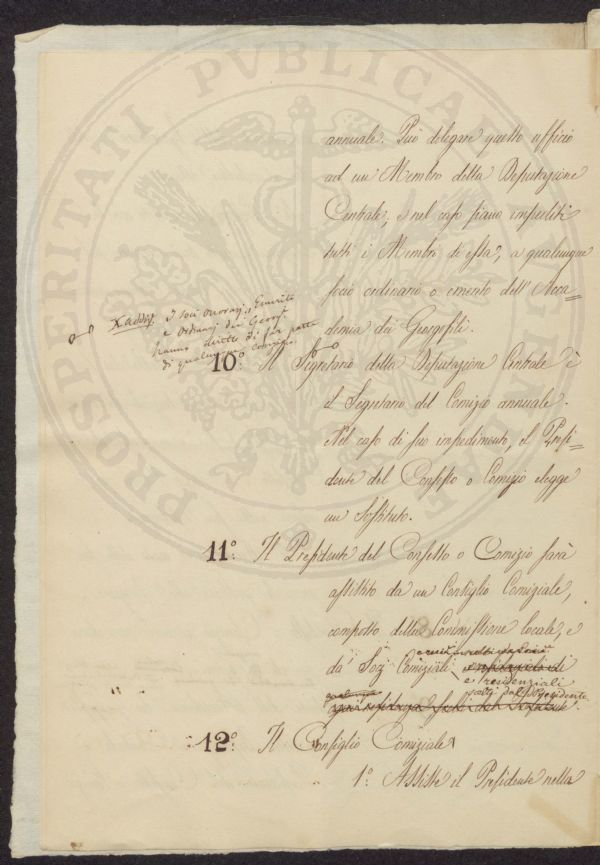 PROSPERITATI PVBLICAE AVGENDAE
annuale. Può delegare questo ufficio
ad un Membro della Deputazione
Centrale, e nel caso siano impediti
tutti i Membri di essa, a qualunque
socio ordinario o emerito dell'Acca=
demia dei Georgofili.
Xaddiz. I soci onorarj, Emeriti
e Ordinarj dei Georgf.
hanno diritto di far parte
di qualunque Comizio.
10.° Il Segretario della Deputazione Centrale è
il Segretario del Comizio annuale.
Nel caso di suo impedimento, il Presi=
dente del Consesso o Comizio elegge
un Sostituto.
11.° Il Presidente del Consesso o Comizio sarà
assistito da un Consiglio Comiziale,
composto della Commissione locale, e
da' Socj Comiziali
e residenziali
scelti dal Presidente
12.° Il Consiglio Comiziale
1.° Assiste il Presidente nella